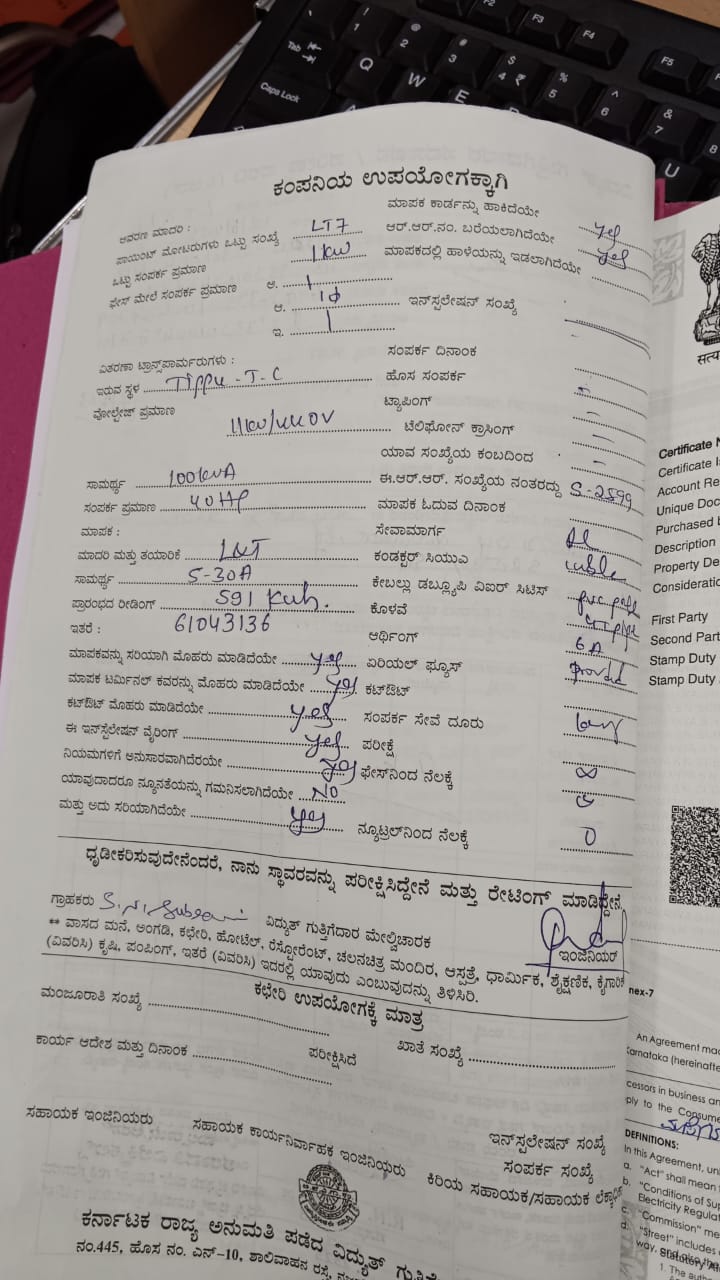 Tab
Caps Lock
! 1
@ 2
# 3
$ 4 ₹
% 5
^ 6
& 7
8
F3
F4
F5
Q
W
E
U
ಕಂಪನಿಯ ಉಪಯೋಗಕ್ಕಾಗಿ
ಆವರಣ ಮಾದರಿ : LT7 ಮಾಪಕ ಕಾರ್ಡನ್ನು ಹಾಕಿದೆಯೇ yes
ಪಾಯಿಂಟ್ ಮೋಟರುಗಳು ಒಟ್ಟು ಸಂಖ್ಯೆ 1kw ಆರ್.ಆರ್.ನಂ. ಬರೆಯಲಾಗಿದೆಯೇ yes
ಒಟ್ಟು ಸಂಪರ್ಕ ಪ್ರಮಾಣ ಮಾಪಕದಲ್ಲಿ ಹಾಳೆಯನ್ನು ಇಡಲಾಗಿದೆಯೇ
ಫೇಸ್ ಮೇಲೆ ಸಂಪರ್ಕ ಪ್ರಮಾಣ ಅ. 1
ಆ. 1ϕ ಇನ್‌ಸ್ಟಲೇಷನ್ ಸಂಖ್ಯೆ
ಇ. 1
ವಿತರಣಾ ಟ್ರಾನ್ಸ್‌ಪಾರ್ಮರುಗಳು : ಸಂಪರ್ಕ ದಿನಾಂಕ
ಇರುವ ಸ್ಥಳ Tippu - T - C ಹೊಸ ಸಂಪರ್ಕ
ವೋಲ್ಟೇಜ್ ಪ್ರಮಾಣ ಟ್ಯಾಪಿಂಗ್
11kv/440V ಟೆಲಿಫೋನ್ ಕ್ರಾಸಿಂಗ್
ಯಾವ ಸಂಖ್ಯೆಯ ಕಂಬದಿಂದ
ಸಾಮರ್ಥ್ಯ 100kVA ಈ.ಆರ್.ಆರ್. ಸಂಖ್ಯೆಯ ನಂತರದ್ದು S-2599
ಸಂಪರ್ಕ ಪ್ರಮಾಣ 40HP ಮಾಪಕ ಓದುವ ದಿನಾಂಕ
ಮಾಪಕ : ಸೇವಾಮಾರ್ಗ
ಮಾದರಿ ಮತ್ತು ತಯಾರಿಕೆ L&T ಕಂಡಕ್ಟರ್ ಸಿಯುವಿ cable
ಸಾಮರ್ಥ್ಯ 5-30A ಕೇಬಲ್ಲು ಡಬ್ಲ್ಯೂಪಿ ವಿಐರ್ ಸಿಟಿಸ್
ಪ್ರಾರಂಭದ ರೀಡಿಂಗ್ 591 Kwh. ಕೊಳವೆ
ಇತರೆ : 61043136 ಆರ್ಥಿಂಗ್
ಮಾಪಕವನ್ನು ಸರಿಯಾಗಿ ಮೊಹರು ಮಾಡಿದೆಯೇ yes ಏರಿಯಲ್ ಫ್ಯೂಸ್ 6A
ಮಾಪಕ ಟರ್ಮಿನಲ್ ಕವರನ್ನು ಮೊಹರು ಮಾಡಿದೆಯೇ yes ಕಟ್‌ಔಟ್ Provided
ಕಟ್‌ಔಟ್ ಮೊಹರು ಮಾಡಿದೆಯೇ yes ಸಂಪರ್ಕ ಸೇವೆ ದೂರು
ಈ ಇನ್‌ಸ್ಟಲೇಷನ್ ವೈರಿಂಗ್ yes ಪರೀಕ್ಷೆ
ನಿಯಮಗಳಿಗೆ ಅನುಸಾರವಾಗಿದೆರೆಯೇ yes ಫೇಸ್‌ನಿಂದ ನೆಲಕ್ಕೆ ∞
ಯಾವುದಾದರೂ ನ್ಯೂನತೆಯನ್ನು ಗಮನಿಸಲಾಗಿದೆಯೇ NO
ಮತ್ತು ಅದು ಸರಿಯಾಗಿದೆಯೇ yes ನ್ಯೂಟ್ರಲ್‌ನಿಂದ ನೆಲಕ್ಕೆ 0
ಧೃಡೀಕರಿಸುವುದೇನೆಂದರೆ, ನಾನು ಸ್ಥಾವರವನ್ನು ಪರೀಕ್ಷಿಸಿದ್ದೇನೆ ಮತ್ತು ರೇಟಿಂಗ್ ಮಾಡಿದ್ದೇನೆ.
ಗ್ರಾಹಕರು ವಿದ್ಯುತ್ ಗುತ್ತಿಗೆದಾರ ಮೇಲ್ವಿಚಾರಕ ಇಂಜಿನಿಯರ್
** ವಾಸದ ಮನೆ, ಅಂಗಡಿ, ಕಛೇರಿ, ಹೋಟೆಲ್, ರೆಸ್ಟೋರೆಂಟ್, ಚಲನಚಿತ್ರ ಮಂದಿರ, ಆಸ್ಪತ್ರೆ, ಧಾರ್ಮಿಕ, ಶೈಕ್ಷಣಿಕ, ಕೈಗಾರಿಕೆ
(ವಿವರಿಸಿ) ಕೃಷಿ, ಪಂಪಿಂಗ್, ಇತರೆ (ವಿವರಿಸಿ) ಇದರಲ್ಲಿ ಯಾವುದು ಎಂಬುವುದನ್ನು ತಿಳಿಸಿರಿ.
ಕಛೇರಿ ಉಪಯೋಗಕ್ಕೆ ಮಾತ್ರ
ಮಂಜೂರಾತಿ ಸಂಖ್ಯೆ ಖಾತೆ ಸಂಖ್ಯೆ
ಕಾರ್ಯ ಆದೇಶ ಮತ್ತು ದಿನಾಂಕ ಪರೀಕ್ಷಿಸಿದೆ
ಇನ್‌ಸ್ಟಲೇಷನ್ ಸಂಖ್ಯೆ
ಸಂಪರ್ಕ ಸಂಖ್ಯೆ
ಸಹಾಯಕ ಇಂಜಿನಿಯರು ಸಹಾಯಕ ಕಾರ್ಯನಿರ್ವಾಹಕ ಇಂಜಿನಿಯರು ಕಿರಿಯ ಸಹಾಯಕ/ಸಹಾಯಕ
ಕರ್ನಾಟಕ ರಾಜ್ಯ ಅನುಮತಿ ಪಡೆದ ವಿದ್ಯುತ್
ನಂ.445, ಹೊಸ ನಂ. ಎನ್-10, ಶಾಲಿವಾಹನ ರಸ್ತೆ,
Certificate N
Certificate I
Account Re
Unique Doc
Purchased b
Description
Property De
Consideratio
First Party
Second Part
Stamp Duty
Stamp Duty
nex-7
An Agreement mad
Karnataka (hereinafte
cessors in business an
ply to the Consume
DEFINITIONS:
In this Agreement, un
a. "Act" shall mean
b. "Conditions of Sup
Electricity Regulat
c. "Commission" me
d. "Street" includes
way,
1. The aut